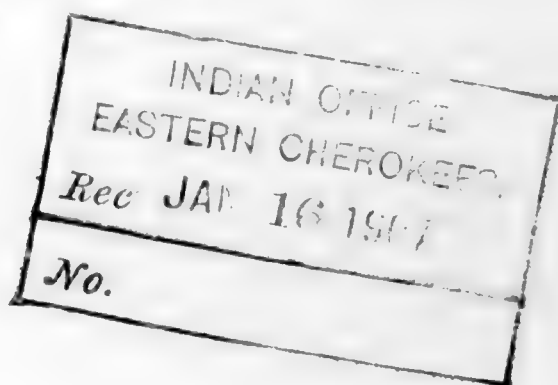 INDIAN OFFICE
EASTERN CHEROKEES.
Rec JAN 16 1907
No.